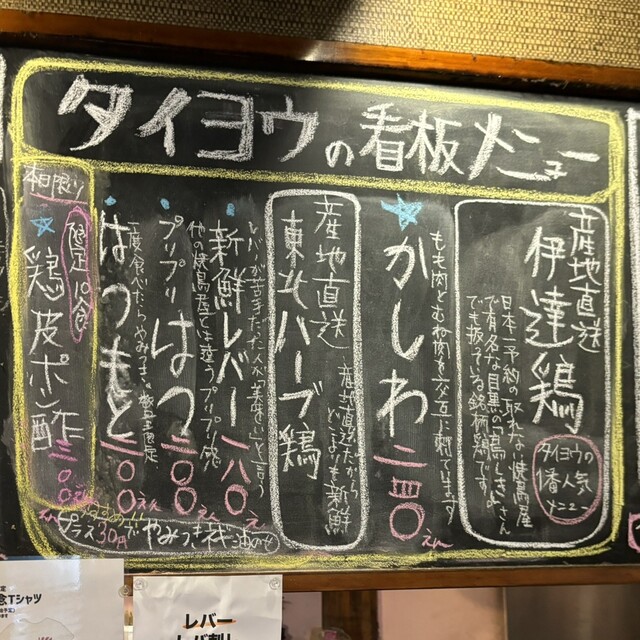 タイヨウの看板メニュー
産地直送
伊達鶏
日本一予約の取れない焼鳥屋
で有名な目黒の鳥しきさん
でも扱っている銘柄鶏です。
タイヨウの
1番人気
メニュー
かしわ 二四〇えん
もも肉とむね肉を交互に刺してます
産地直送
東北ハーブ鶏
産地直送だから
どこよりも新鮮
新鮮レバー 一八〇えん
レバーが苦手だった人が「美味しい」と言う
プリプリはつ 二〇〇えん
他の焼鳥屋とは違うプリプリ感
はつもと 二〇〇えん
一度食べたらやみつき。
プラス30円 やみつき
本日限り
限定10食
鶏皮ポン酢 三〇〇えん
念Tシャツ
レバー